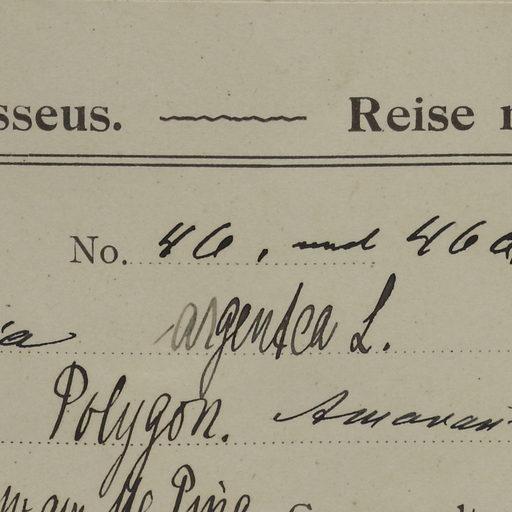 sseus. Reise
No. 46, und 46a
argentea L.
Polygon. Amaran